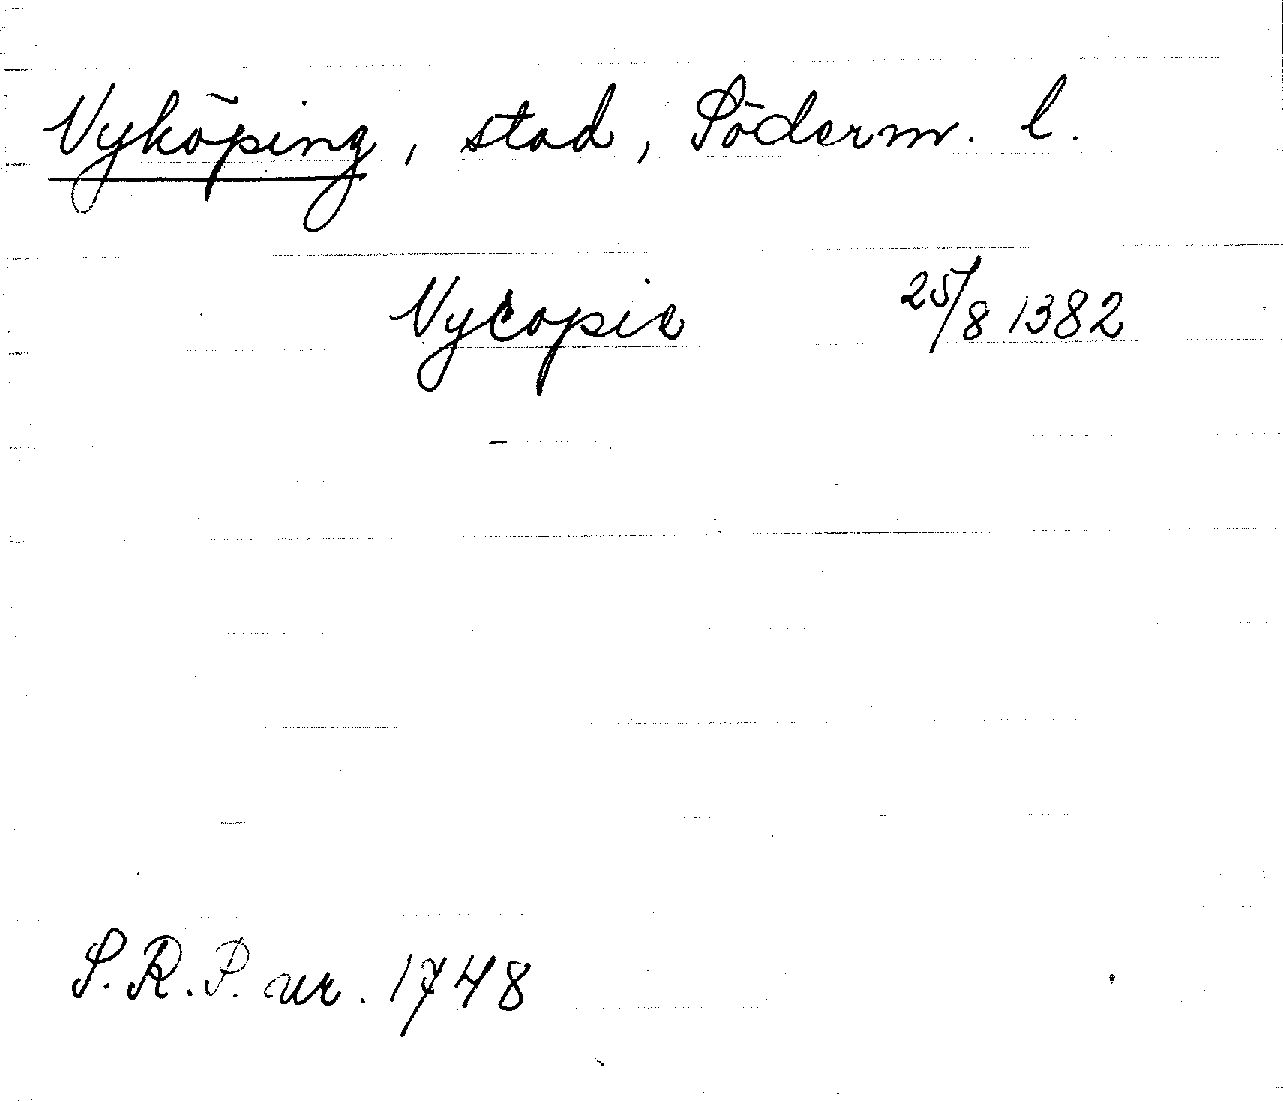 Nyköping, stad, Söderm. l.
Nycopie 25/8 1382
S.R.P. nr. 1748